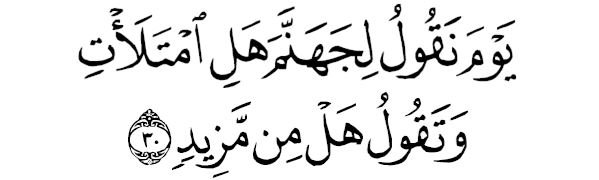 يَوْمَ نَقُولُ لِجَهَنَّمَ هَلِ ٱمْتَلَأْتِ
وَتَقُولُ هَلْ مِن مَّزِيدٍ ٣٠